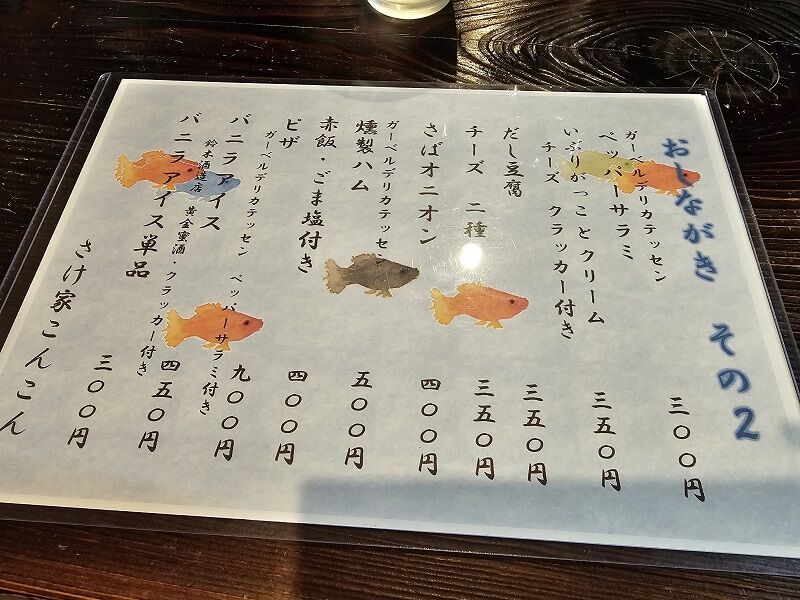 おしながき その２
ガーベルデリカテッセン
ペッパーサラミ
三〇〇円
いぶりがっことクリーム
チーズ クラッカー付き
三五〇円
だし豆腐
三五〇円
チーズ 二種
三五〇円
さばオニオン
四〇〇円
ガーベルデリカテッセン
燻製ハム
五〇〇円
赤飯・ごま塩付き
四〇〇円
ピザ
ガーベルデリカテッセン ペッパーサラミ付き
九〇〇円
バニラアイス
鈴木酒造店 黄金蜜酒・クラッカー付き
四五〇円
バニラアイス単品
三〇〇円
さけ家こんこん